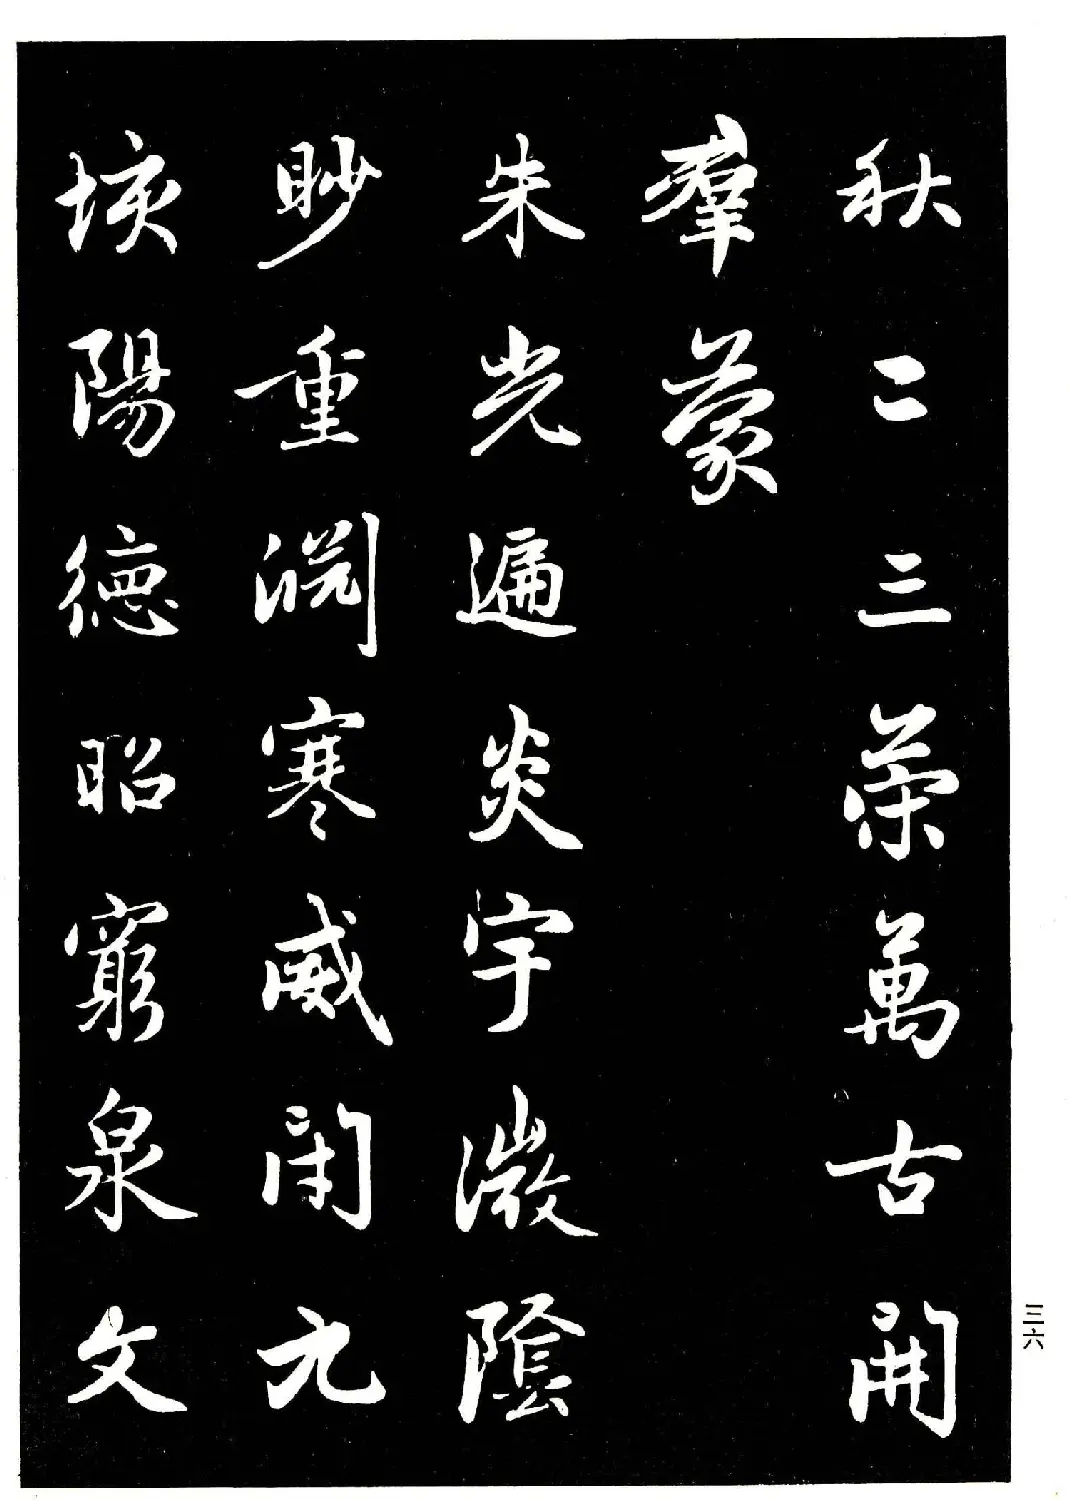 秋二三荣萬古開
羣蒙
朱光遍炎宇微陰
眇重淵寒威閉九
垓陽德昭窮泉文
三六